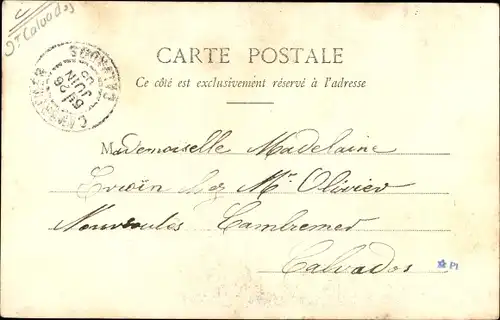 Dt Calvados
CARTE POSTALE
Ce côté est exclusivement réservé à l'adresse
CAMBREMER
CALVADOS
26
JUIN
05
Mademoiselle Madelaine
chez Mr Olivier
Cambremer
Calvados
PI